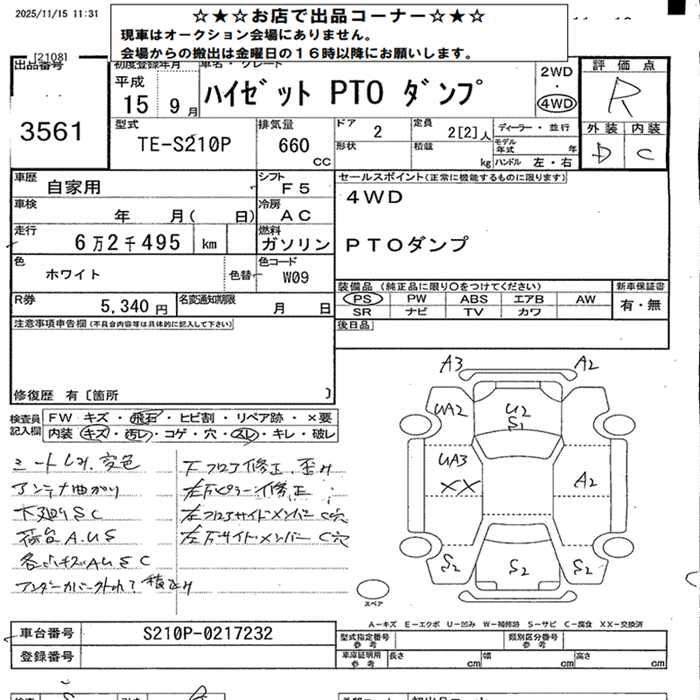 2025/11/15 11:31
☆★☆お店で出品コーナー☆★☆
現車はオークション会場にありません。
会場からの搬出は金曜日の16時以降にお願いします。
[2108]
出品番号
3561
初度登録年月
平成
15年9月
車名・グレード
ハイゼット PTO ダンプ
2WD
・
4WD
評価点
R
外装 内装
D C
型式
TE-S210P
排気量
660
cc
ドア
2
定員
2[2]人
ディーラー・並行
モデル年式 年
形状
積載
kg
ハンドル 左・右
車歴
自家用
シフト
F5
セールスポイント(正常に機能するものに限ります)
4WD
PTOダンプ
車検
年 月( 日)
冷房
AC
走行
6万2千495 km
燃料
ガソリン
色
ホワイト
色替
色コード
W09
装備品 (純正品に限り○をつけてください)
PS PW ABS エアB AW
SR ナビ TV カワ
新車保証書
有・無
R券
5,340 円
名変通知期限
月 日
後日品
注意事項申告欄(不具合内容等は具体的に記入して下さい)
修復歴 有〔箇所 〕
検査員
記入欄
FW キズ・飛石・ヒビ割・リペア跡・×要
内装 キズ・汚レ・コゲ・穴・スレ・キレ・破レ
シートしみ、変色
アンテナ曲がり
下廻りSC
荷台A.U.S
下フロア修正、歪み
左右ピラー修正
左フロアサイドメンバーC穴
左右サイドメンバーC穴
A3
A2
UA2
U2
S1
UA3
XX
A2
S2
S2
S2
スペア
A-キズ E-エクボ U-凹み W-補修跡 S-サビ C-腐食 XX-交換済
車台番号
S210P-0217232
登録番号
型式指定番号
参考
類別区分番号
参考
車庫証明用
参考
長さ cm
幅 cm
高さ cm